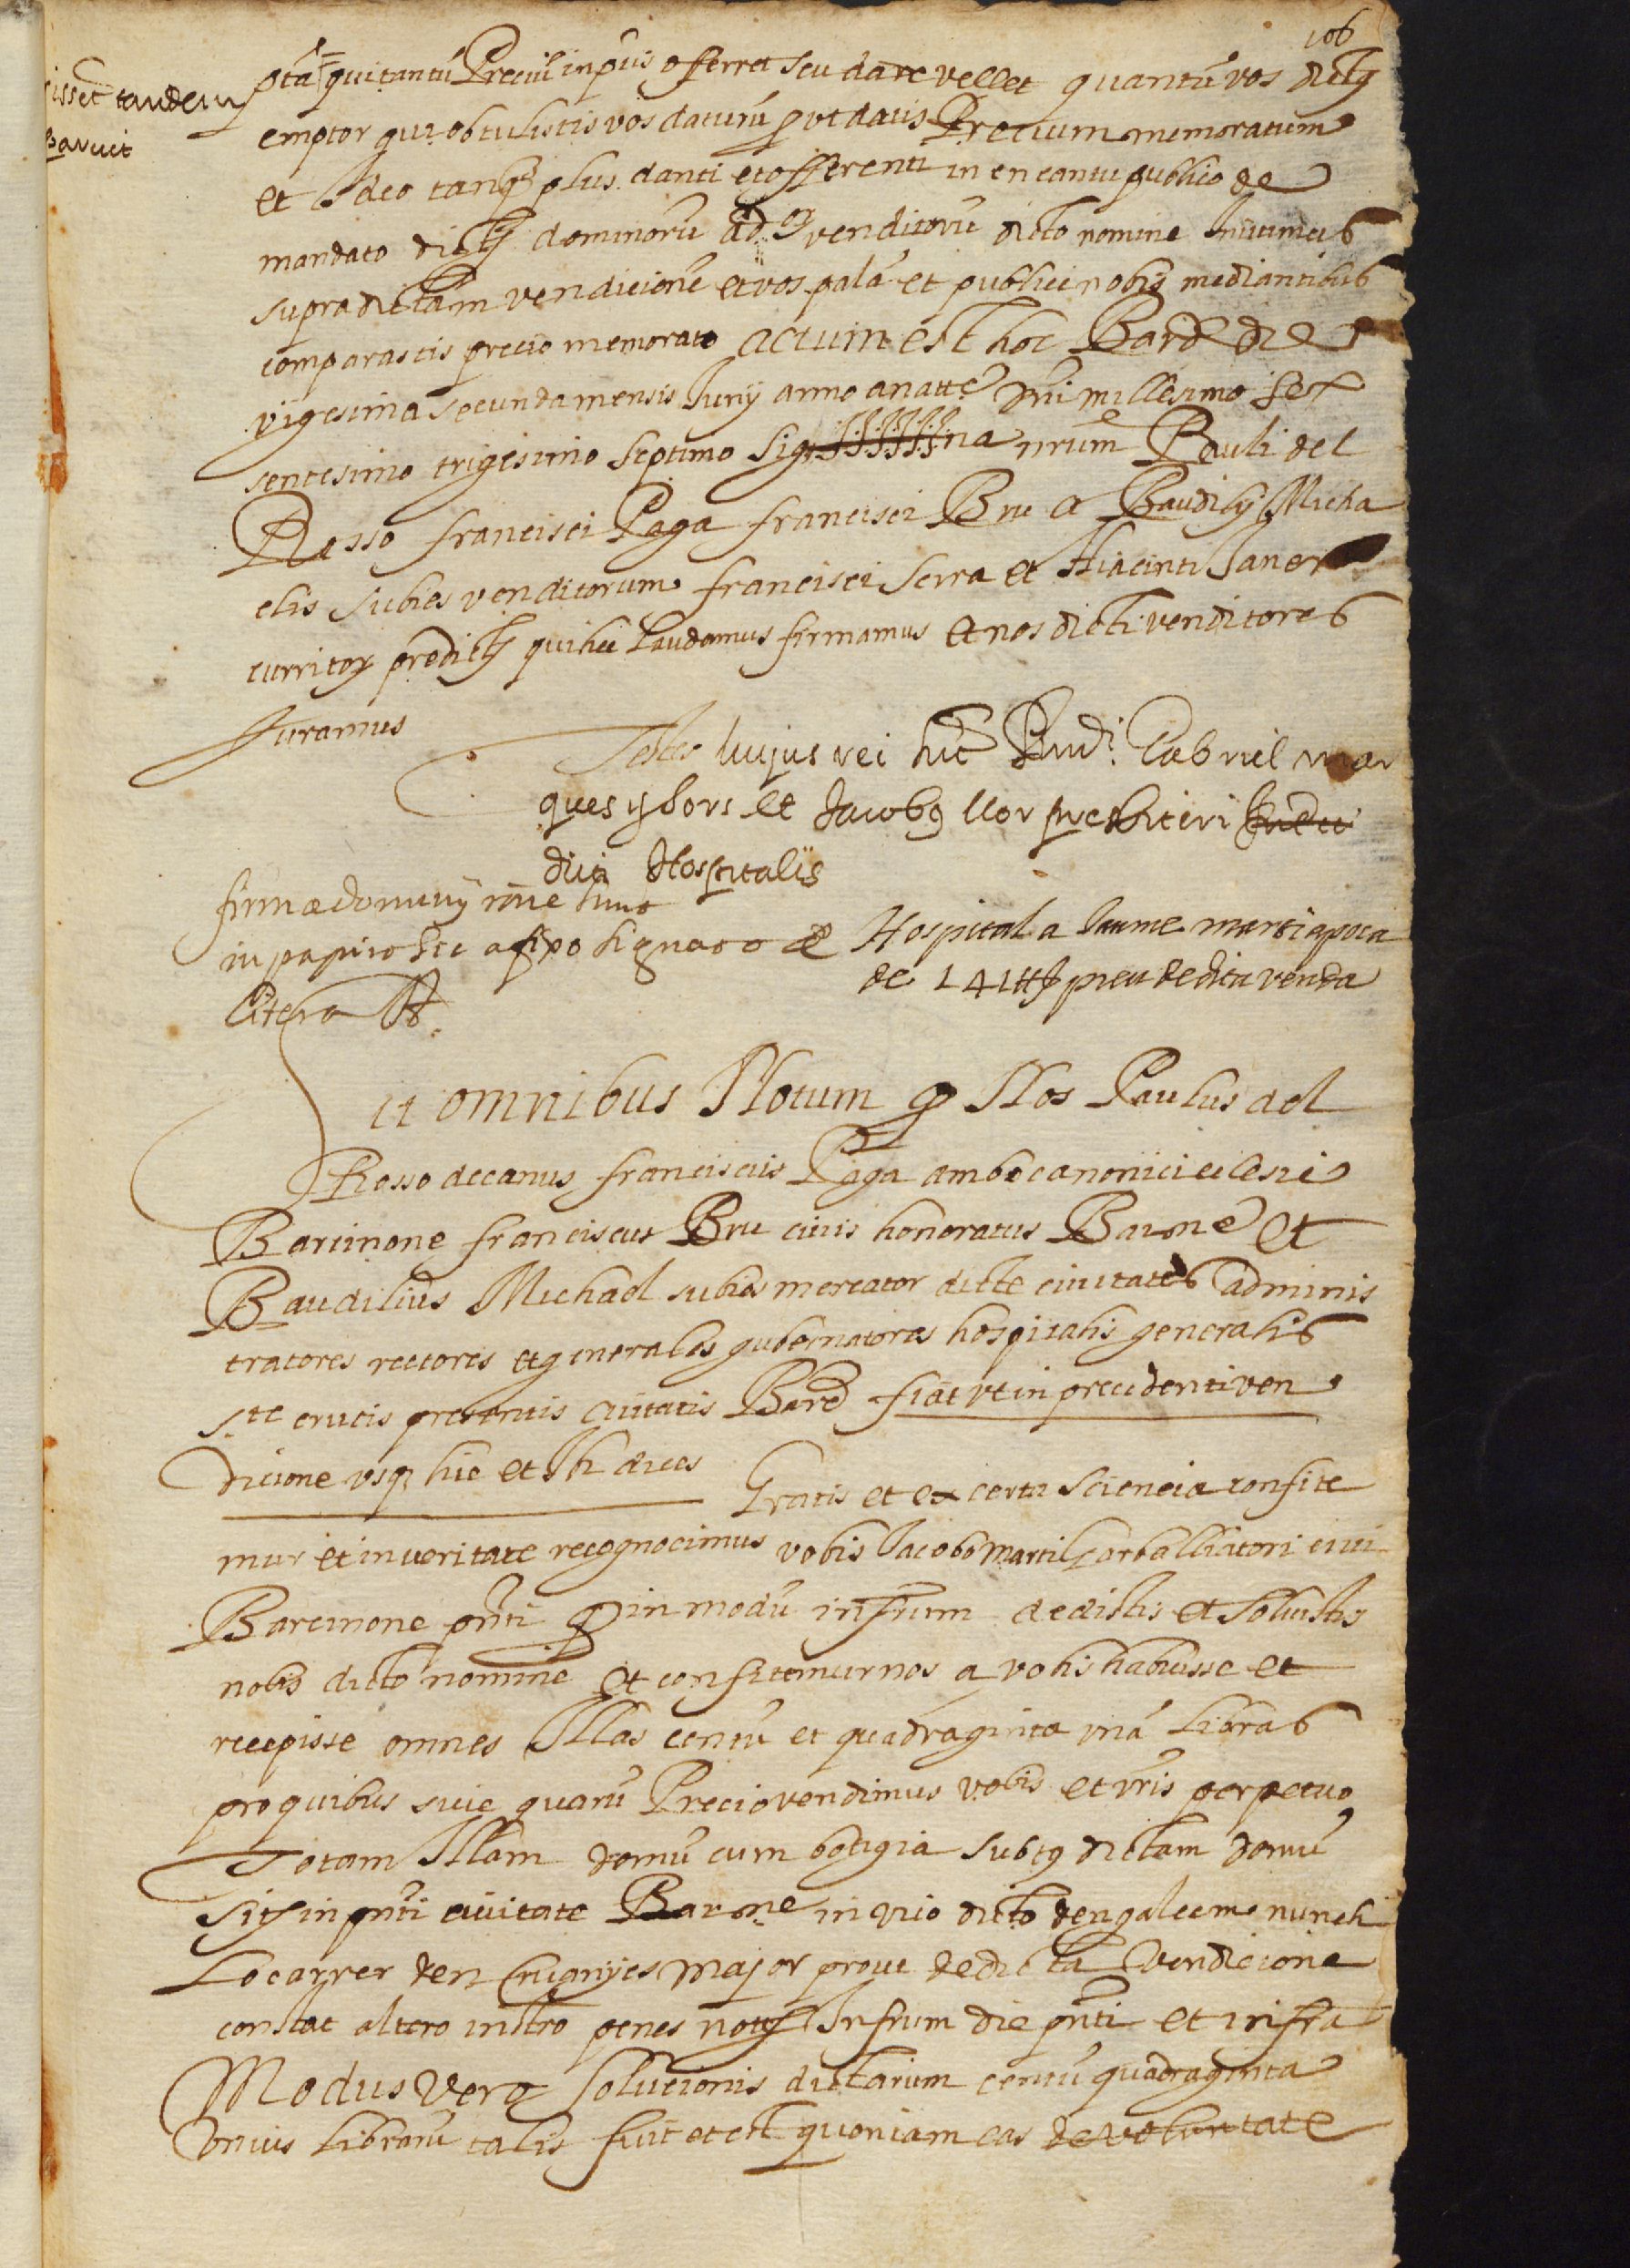 106
isset tandem
Bavuit
ptã quitantũ Preciũ in pũis offerret seu dare vellet quantũ vos dictus
emptor qui obtulistis vos daturũ prout datis Precium memoratum
et Ideo tanq̃ plus danti et offerenti in encantu publico de
mandato dictor dominorũ ad.or venditorũ dicto nomine
supradictam vendicionẽ et vos palã et publice nobis mediantibus
comparastis precio memorato actum est hoc Barcẽ die
vigesima secunda mensis Junij anno a natte Dñi millesimo sex
sentesimo trigesimo septimo Sig+++++na nrum Pauli del
Rosso francisci Paga francisci Bru et Baudilij Micha
elis Subies venditorum francisci Serra et Hiacinti Janer
curritor predictor qui hec laudamus firmamus et nos dicti venditores
Juramus
Testes hujus rei sũt Rndi. Gabriel mar
ques y bors et Jacobus llor prebiteri
dicti Hospitalis
firmæ dominij rõne sunt
in papiro sic afixo signato de
Litera A.
Hospital a Jaume marti apoca
de 141 ₶ preu de dita venda
it omnibus Notum q Nos Paulus del
Rosso decanus franciscus Paga ambo canonici eclesie
Barcinone franciscus Bru civis honoratus Barnẽ et
Baudilius Michael subies mercator dicte civitates adminis
tratores rectores et generales gubernatores hospitalis generalis
Ste crucis presentis civitatis Barcẽ fiat ut in precedenti ven
dicione usq hic et Ibi dices Gratis et ex certa sciencia confite
mur et in veritate recognocimus vobis Jacobo Marti civi
Barcinone pñti q in modũ infrum dedistis et solvistis
nobis dicto nomine et confitemur nos a vobis habuisse et
recepisse omnes Illas centũ et quadraginta unã Libras
pro quibus sive quarũ Precio vendimus vobis et vris perpetuo
Totam Illam domũ cum botigia subtus dictam domũ
sits in pñti civitate Barcne in vico dicto den galcem nunch
Lo carrer den major prout de dicta Vendicione
constat altero instro penes notm Infrum die pñti et infra
Modus Vero solucionis dictarum centũ quadraginta
Unius Librarũ talis fuit et est quoniam eas de voluntate